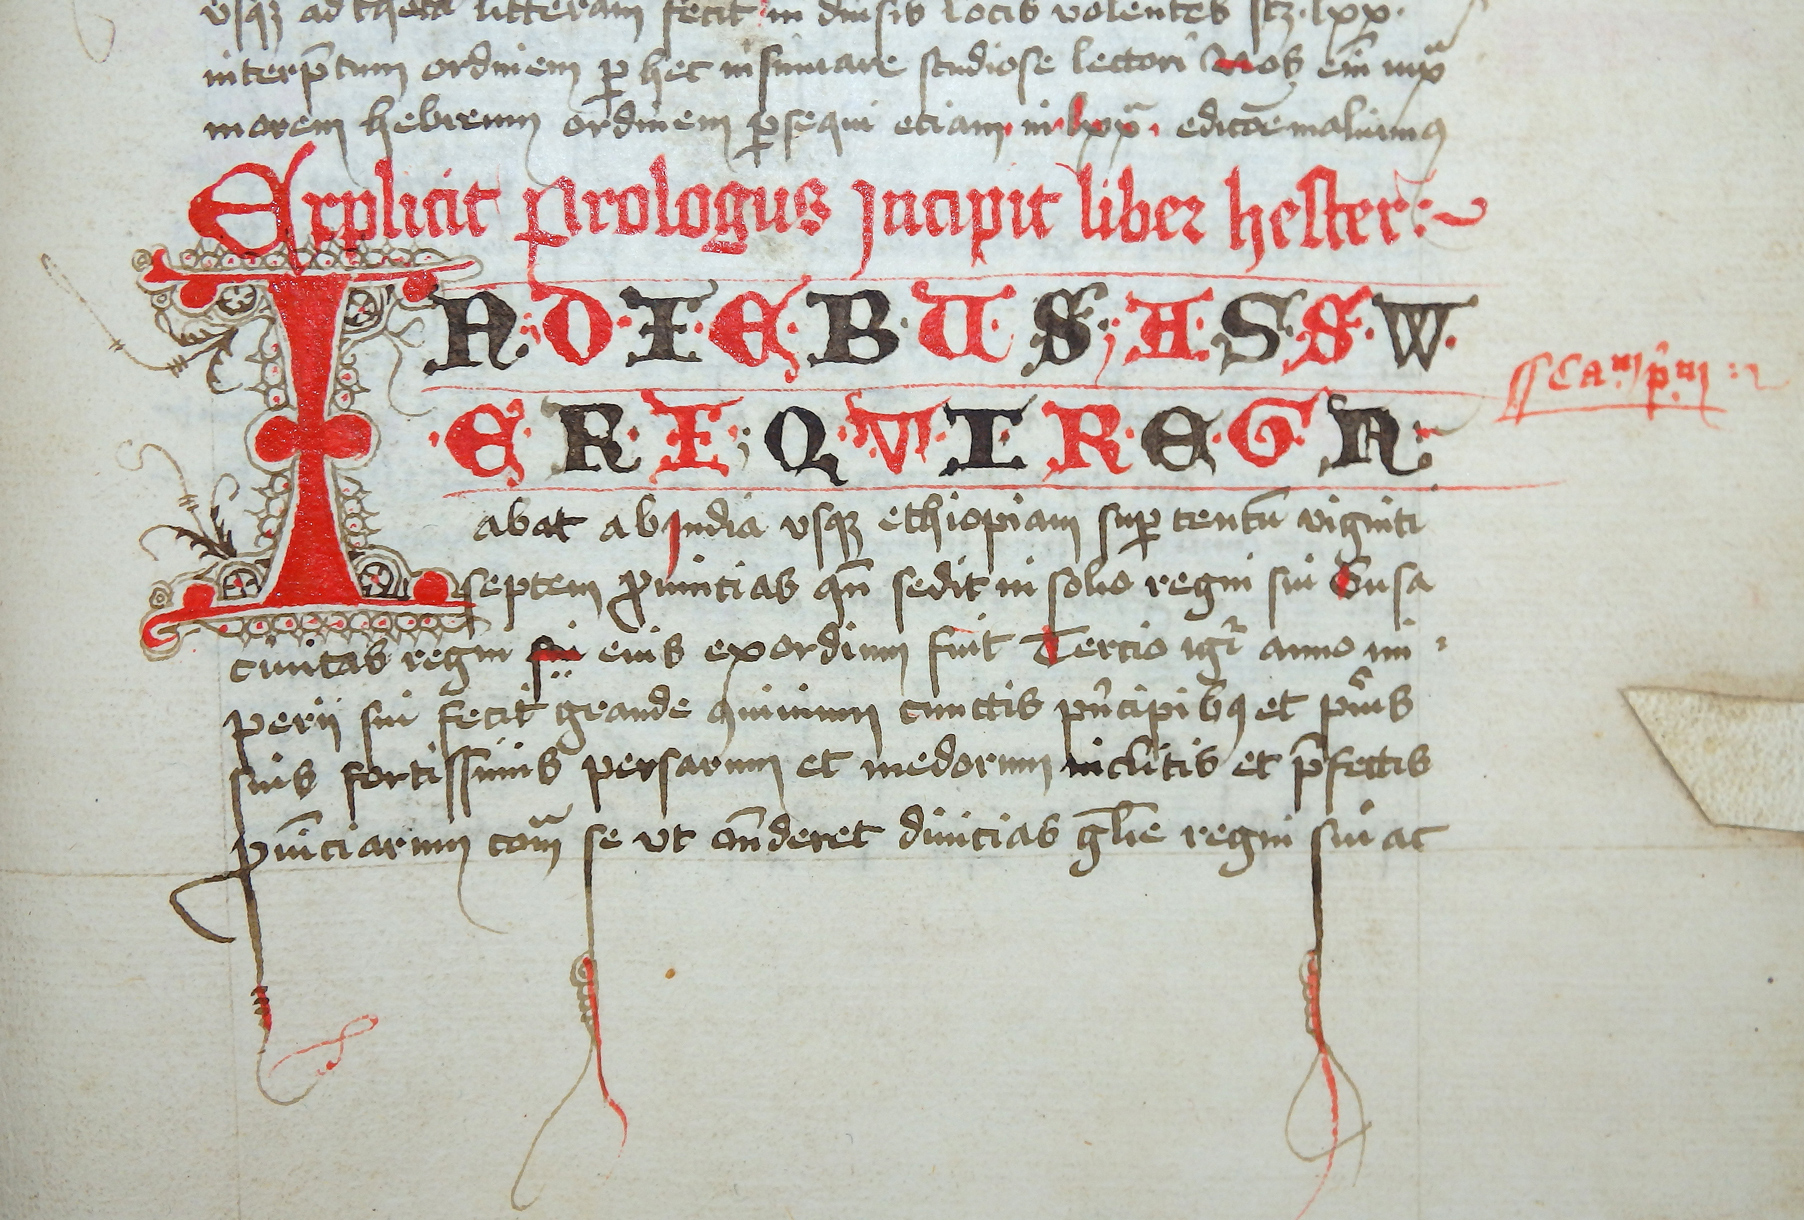 usq₃ ad theta litteram fecit in diūsis locis volentes scz .lxx.
interp̄tum ordinem ꝑ hec insinuare studiose lectori Nos em̄ iuxᵃ
morem hebreum ordinem ꝑsequi eciam in lxxᵃ. edicōe maluimꝰ
Explicit prologus Incipit liber hester:~
IN·D·I·E·B·U·S·A·S·S·W·
·E·R·I·Q·V·I·R·E·G·N·
Ca^m p^m
abat ab India usq₃ ethiopiam suꝑ centū viginti
septem ꝓuincias qn̄ sedit in solio regni sui Susa
ciuitas regni sui eius exordium fuit Tercio igiᵗ anno im
perij sui fecit grande ꝯuiuium cunctis pn̄cipibꝰ et pūis
suis fortissimis persarum et medorum inclitis et p̄fectis
ꝓuīciarum coᵃm se ut on̄deret diuicias gl̄ie regni sui ac